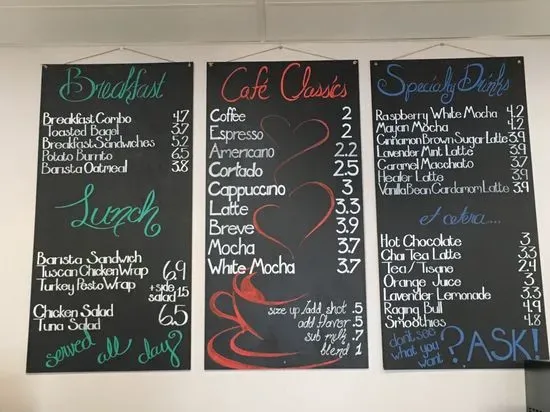 Breakfast
Breakfast Combo 4.7
Toasted Bagel 3.7
Breakfast Sandwiches 5.2
Potato Burrito 6.5
Barista Oatmeal 3.8
Lunch
Barista Sandwich
Tuscan Chicken Wrap 6.9
Turkey Pesto Wrap +side salad 1.5
Chicken Salad 6.5
Tuna Salad
served all day?
Café Classics
Coffee 2
Espresso 2
Americano 2.2
Cortado 2.5
Cappuccino 3
Latte 3.3
Breve 3.9
Mocha 3.7
White Mocha 3.7
size up/add shot .5
add flavor .5
sub milk .7
blend 1
Specialty Drinks
Raspberry White Mocha 4.2
Mayan Mocha 4.2
Cinnamon Brown Sugar Latte 3.9
Lavender Mint Latte 3.9
Caramel Macchiato 3.7
Healer Latte 3.9
Vanilla Bean Cardamom Latte 3.9
et cetera....
Hot Chocolate 3
Chai Tea Latte 3.3
Tea/Tisane 2.4
Orange Juice 3
Lavender Lemonade 3.3
Raging Bull 4.9
Smoothies 4.8
don't see
what you
want? ASK!